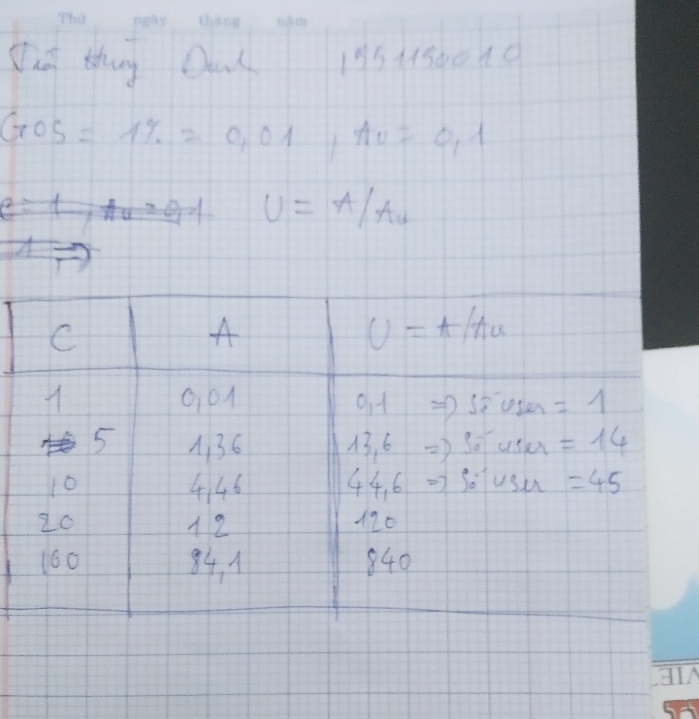 Thứ ngày tháng năm
Danh 1951150010
GOS = 1% = 0,01 , Au = 0,1
c = 1 , Au = 0,1 U = A/Au
1 =>
C A U = A/Au
1 0,01 0,1 => Số user = 1
5 1,36 13,6 => Số user = 14
10 4,46 44,6 => Số user = 45
20 12 120
100 84,1 840
VIE